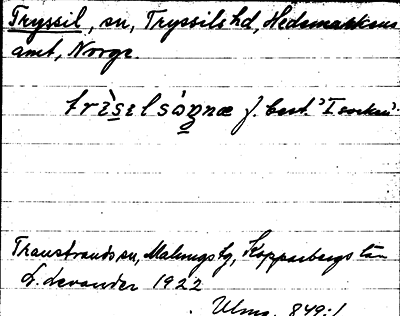 Tryssil, sn, Tryssils hd, Hedemarkens
amt, Norge.
trìsɩlsògnæ f. best. "T socken".
Transtrands sn, Malungs tg, Kopparbergs län
L. Levander 1922
Ulma. 849:1